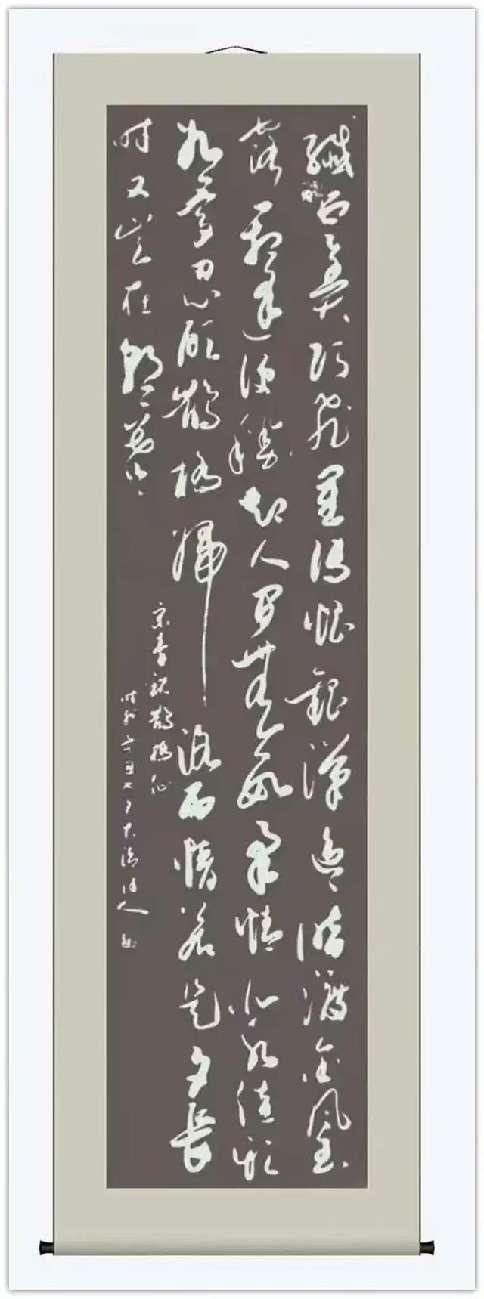 纖云弄巧飛星傳恨銀漢迢迢暗渡金風玉
露一相逢便勝却人間無數柔情似水佳期
如夢忍顧鵲橋歸路兩情若是久長
时又岂在朝朝暮暮
宋秦觀詞鵲橋仙